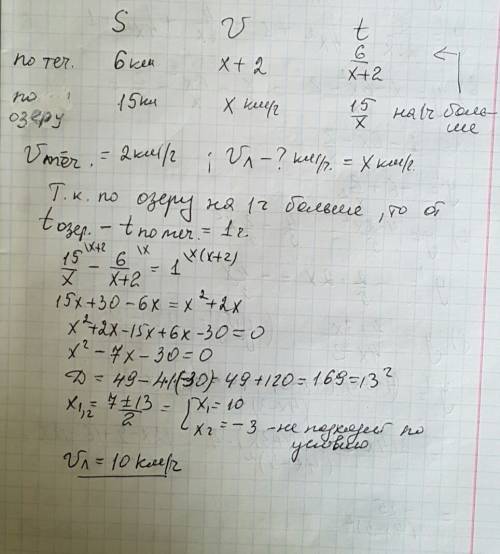 S V t
по теч. 6 км x+2 6/(x+2)
по озеру 15 км x км/ч 15/x на 1ч больше
Vтеч. = 2 км/ч ; Vл - ? км/ч. = x км/ч.
Т.к. по озеру на 1 ч больше, то от
t озер. - t по теч. = 1 ч.
15/x \x+2 - 6/(x+2) \x = 1 \x(x+2)
15x+30-6x = x²+2x
x²+2x-15x+6x-30=0
x²-7x-30=0
D = 49-4·(-30) = 49+120=169=13²
x1,2 = (7±13)/2 = { x1=10
x2=-3 - не подходит по условию
Vл = 10 км/ч